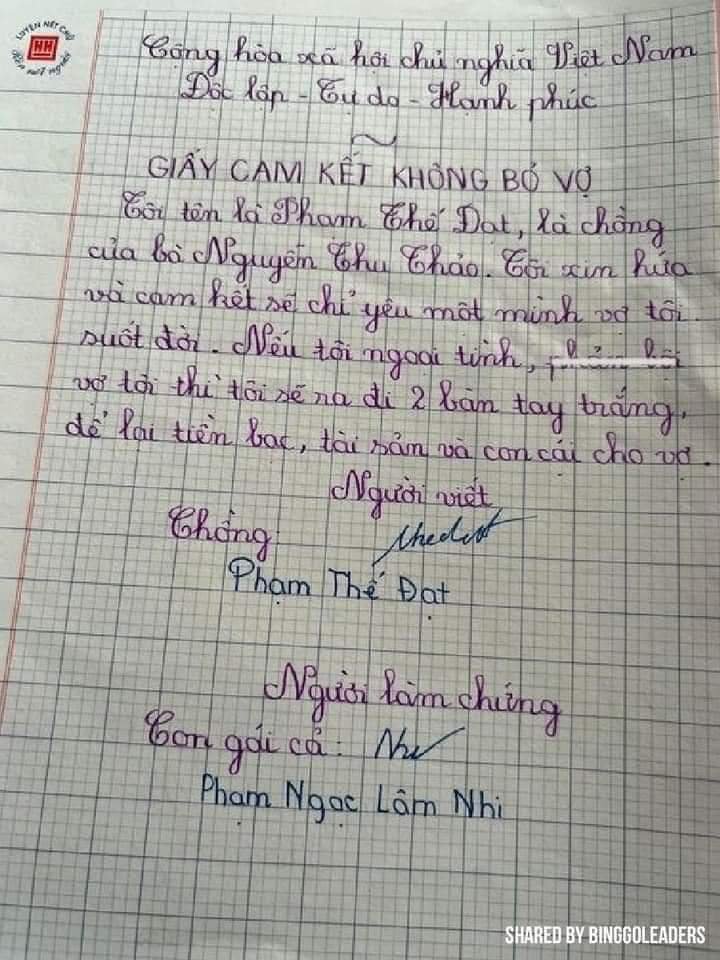 LUYỆN NÉT CHỮ
HH
Rèn nết người
Cộng hòa xã hội chủ nghĩa Việt Nam
Độc lập - Tự do - Hạnh phúc
GIẤY CAM KẾT KHÔNG BỎ VỢ
Tôi tên là Phạm Thế Đạt, là chồng
của bà Nguyễn Thu Thảo. Tôi xin hứa
và cam kết sẽ chỉ yêu một mình vợ tôi
suốt đời. Nếu tôi ngoại tình,
vợ tôi thì tôi sẽ ra đi 2 bàn tay trắng,
để lại tiền bạc, tài sản và con cái cho vợ.
Người viết
Chồng
Phạm Thế Đạt
Người làm chứng
Con gái cả: Nhi
Phạm Ngọc Lâm Nhi
SHARED BY BINGGOLEADERS